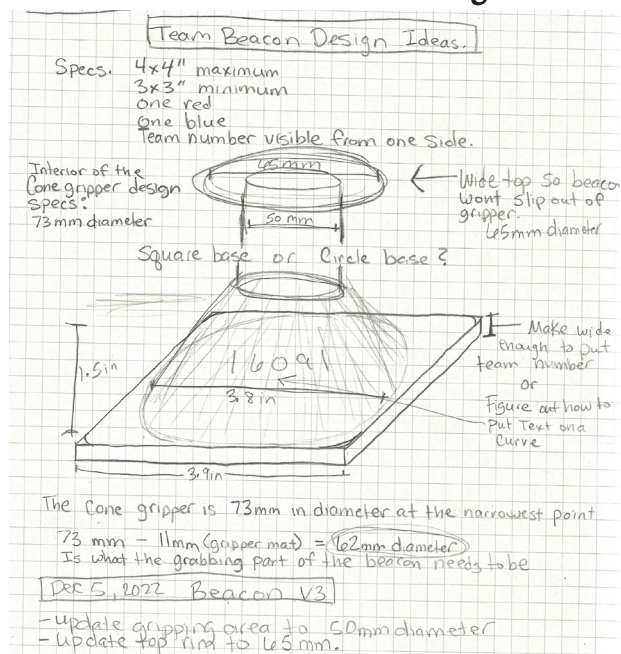 Team Beacon Design Ideas.
Specs. 4x4" maximum
3x3" minimum
one red
One blue
Team number visible from one side.
Interior of the
Cone gripper design
specs:
73mm diameter
65mm
Wide top so beacon
wont slip out of
gripper.
65mm diameter
50 mm
Square base or Circle base?
Make wide
enough to put
team number
or
Figure out how to
Put Text on a
Curve
1.5in
16091
3.8in
3.9in
The Cone gripper is 73mm in diameter at the narrowest point
73 mm - 11mm (gripper mat) = 62mm diameter
Is what the grabbing part of the beacon needs to be
Dec 5, 2022 Beacon V3
- update gripping area to 50mm diameter
- update top ring to 65mm.